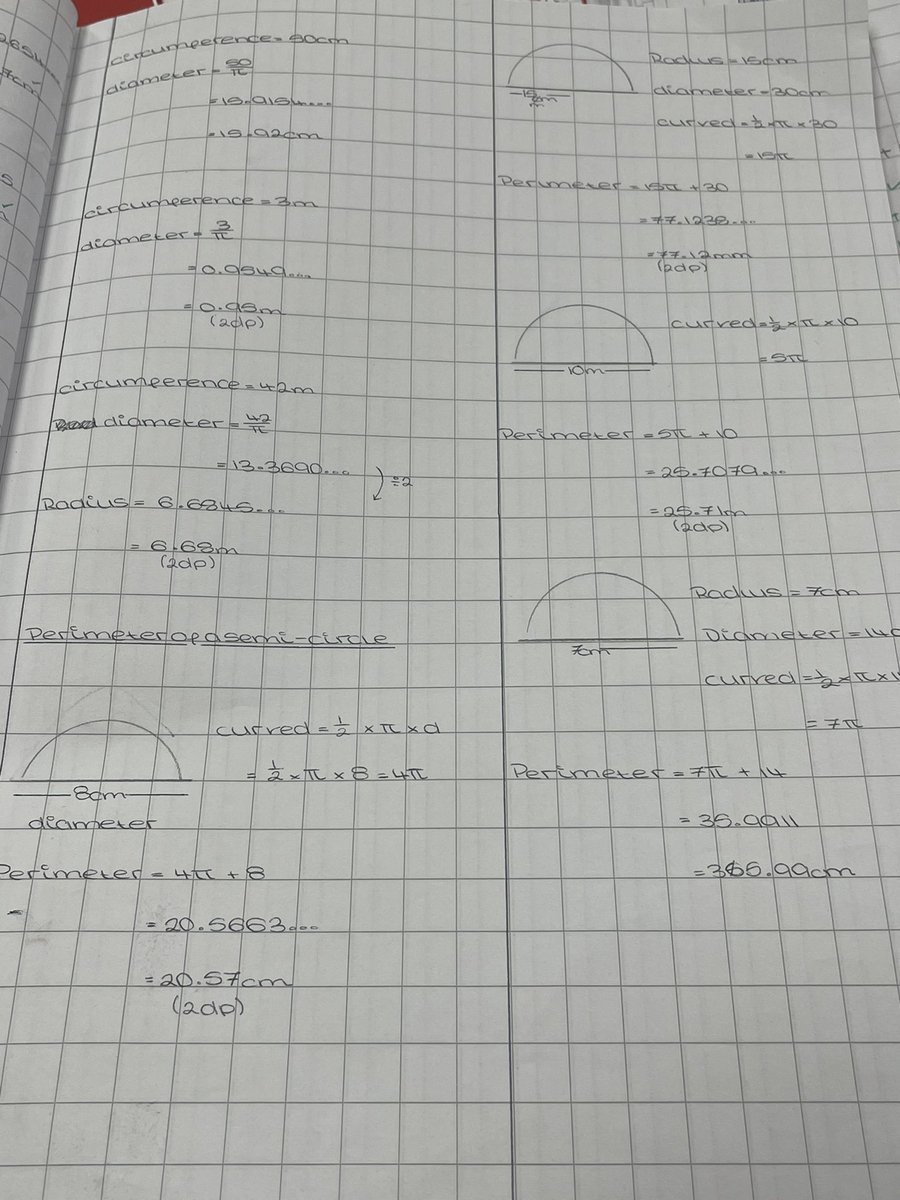 circumeference = 50cm
diameter = 50/π
= 15.9154....
= 15.92cm
circumeerence = 3m
diameter = 3/π
= 0.9549....
= 0.95m
(2dp)
circumeerence = 42m
diameter = 42/π
= 13.3690.... ÷2
Radius = 6.6845...
= 6.68m
(2dp)
Perimeter of a semi-circle
curved = 1/2 × π × d
= 1/2 × π × 8 = 4π
8cm
diameter
Perimeter = 4π + 8
= 20.5663...
= 20.57cm
(2dp)
Radius = 15cm
15cm
diameter = 30cm
curved = 1/2 × π × 30
= 15π
Perimeter = 15π + 30
= 77.1238....
= 77.12mm
(2dp)
curved = 1/2 × π × 10
= 5π
10m
Perimeter = 5π + 10
= 25.7079....
= 25.71m
(2dp)
Radius = 7cm
Diameter = 14c
7cm
curved = 1/2 × π × 1
= 7π
Perimeter = 7π + 14
= 35.9911
= 35.99cm